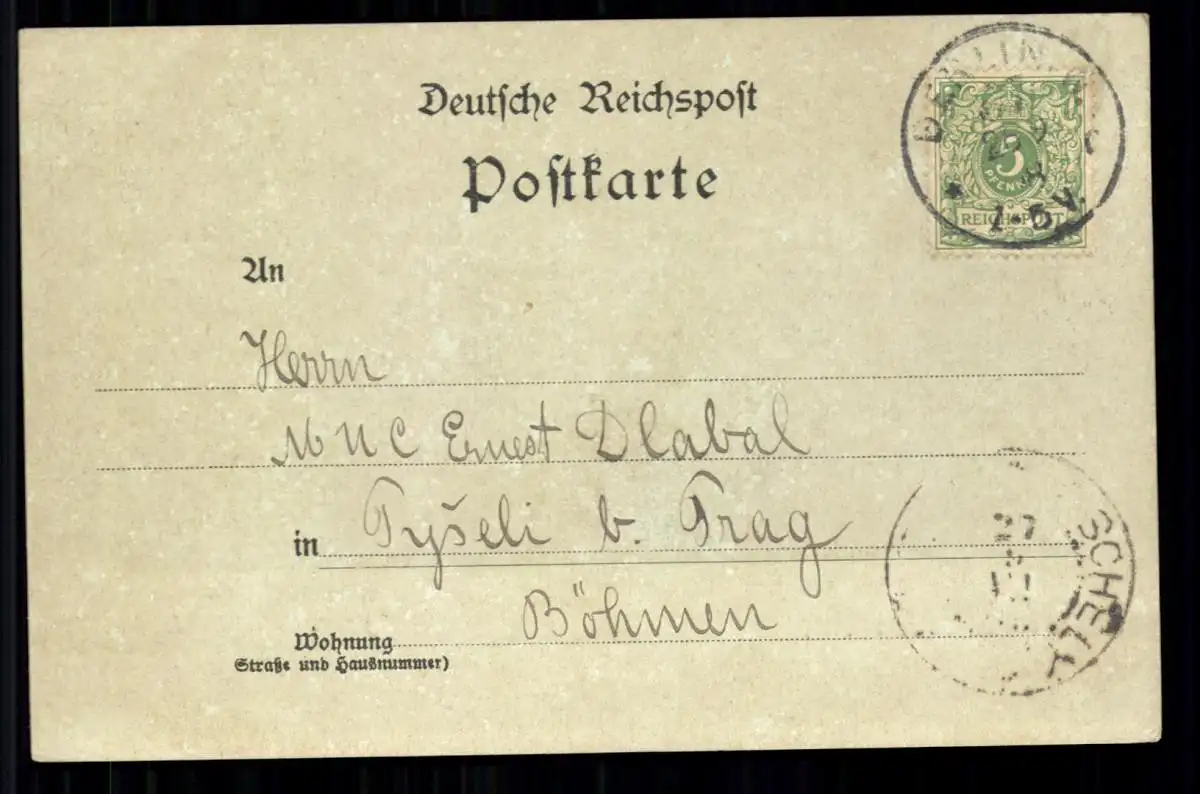 Deutsche Reichspost
Postkarte
BERLIN
5
PFENNIG
REICHSPOST
1-5V.
An
Herrn
MUC Ernest Dlabal
in Tyšeli b. Prag
Böhmen
Wohnung
Straße und Hausnummer)
27
SCHELL